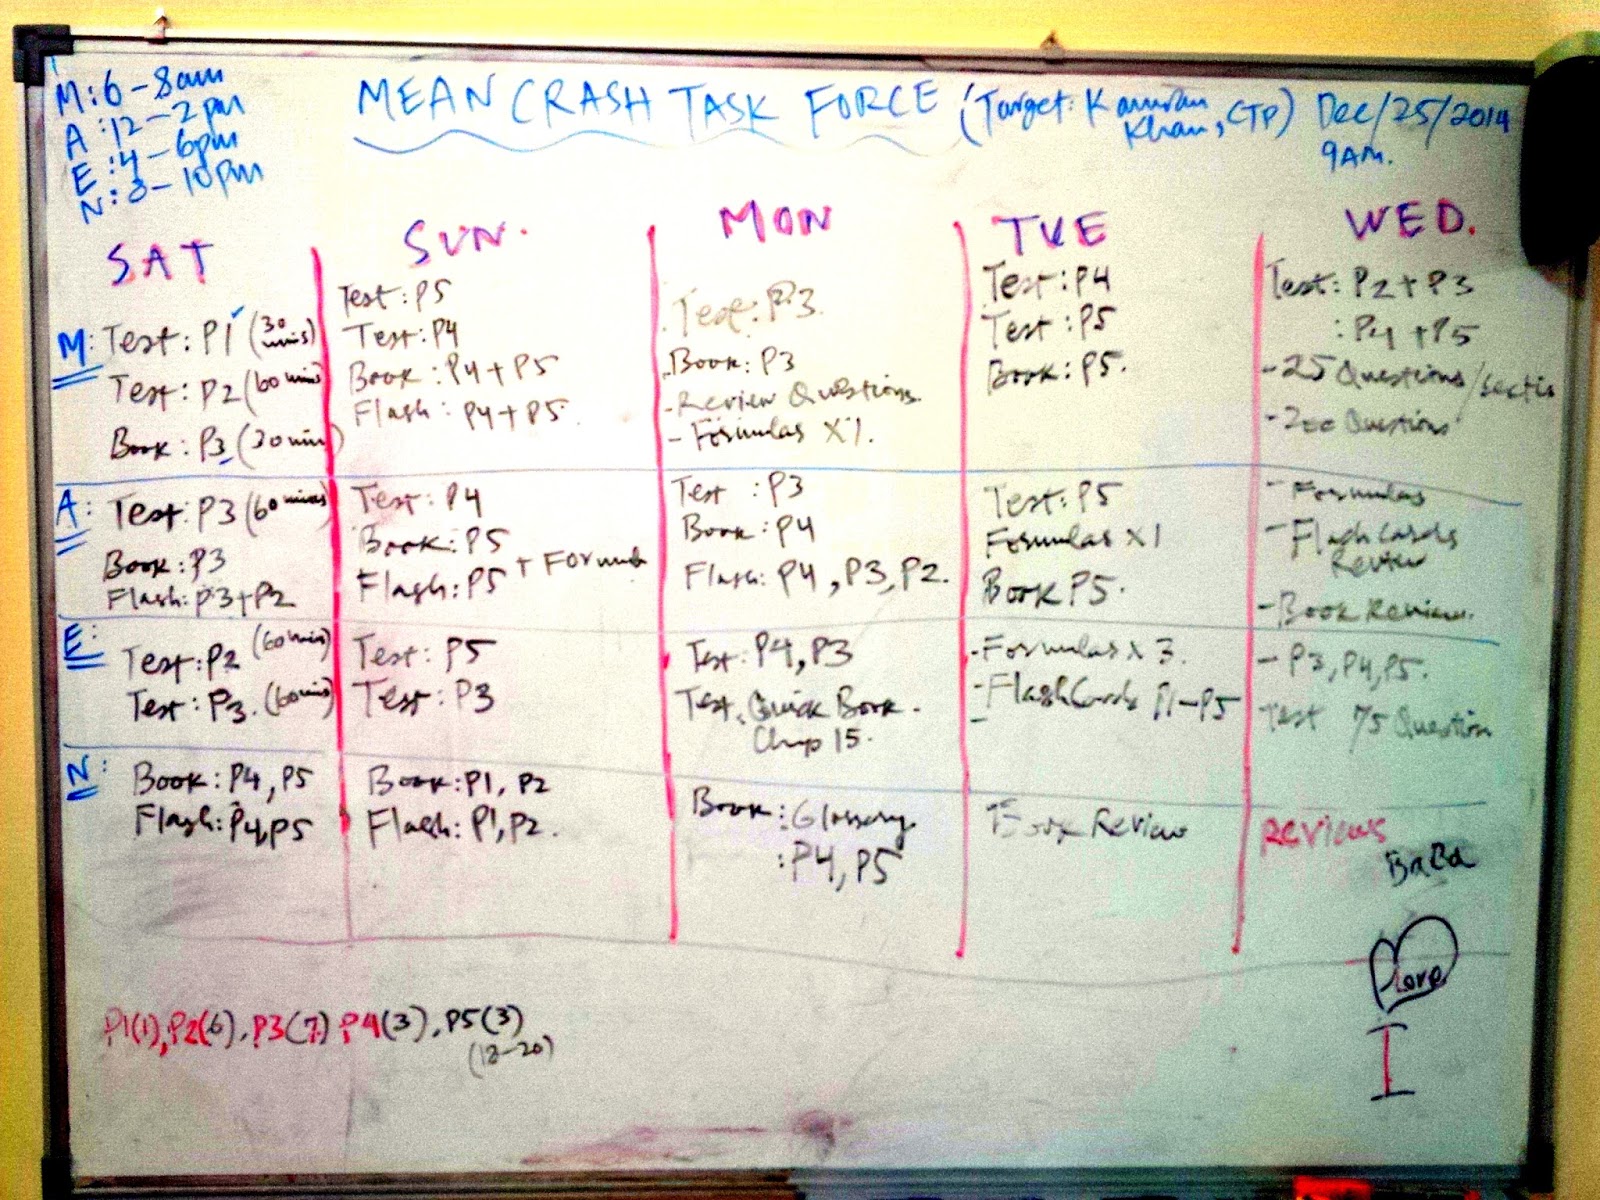 M: 6 - 8am
A: 12 - 2pm
E: 4 - 6pm
N: 8 - 10pm
MEAN CRASH TASK FORCE (Target: Kamran Khan, CTP) Dec/25/2014
9AM.
SAT
M: Test: P1 ✓ (30 mins)
Test: P2 (60 mins)
Book: P3 (30 min)
A: Test: P3 (60 mins)
Book: P3
Flash: P3+P2
E: Test: P2 (60 min)
Test: P3. (60 mins)
N: Book: P4, P5
Flash: P4, P5
SUN.
Test: P5
Test: P4
Book: P4 + P5
Flash: P4 + P5
Test: P4
Book: P5
Flash: P5 + Formula
Test: P5
Test: P3
Book: P1, P2
Flash: P1, P2.
MON
Test: P3.
Book: P3
- Review Questions.
- Formulas X1.
Test: P3
Book: P4
Flash: P4, P3, P2.
Test: P4, P3
Test: Quick Book.
Chap 15.
Book: Glossary
: P4, P5
TUE
Test: P4
Test: P5
Book: P5.
Test: P5
Formulas X1
Book P5.
- Formulas X 3.
- FlashCards P1-P5
-
Book Review
WED.
Test: P2 + P3
: P4 + P5
- 25 Questions/Sectio
- 200 Questions
- Formulas
- FlashCards
Review
- Book Review.
- P3, P4, P5.
Test 75 Question
REVIEWS
BaBa
Love
I
P1(1), P2(6), P3(7) P4(3), P5(3)
(18-20)